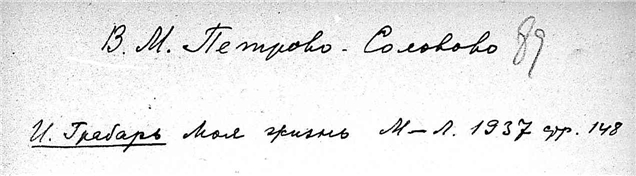 В. М. Петрово-Соловово 89
И. Грабарь Моя жизнь М–Л. 1937 стр. 148